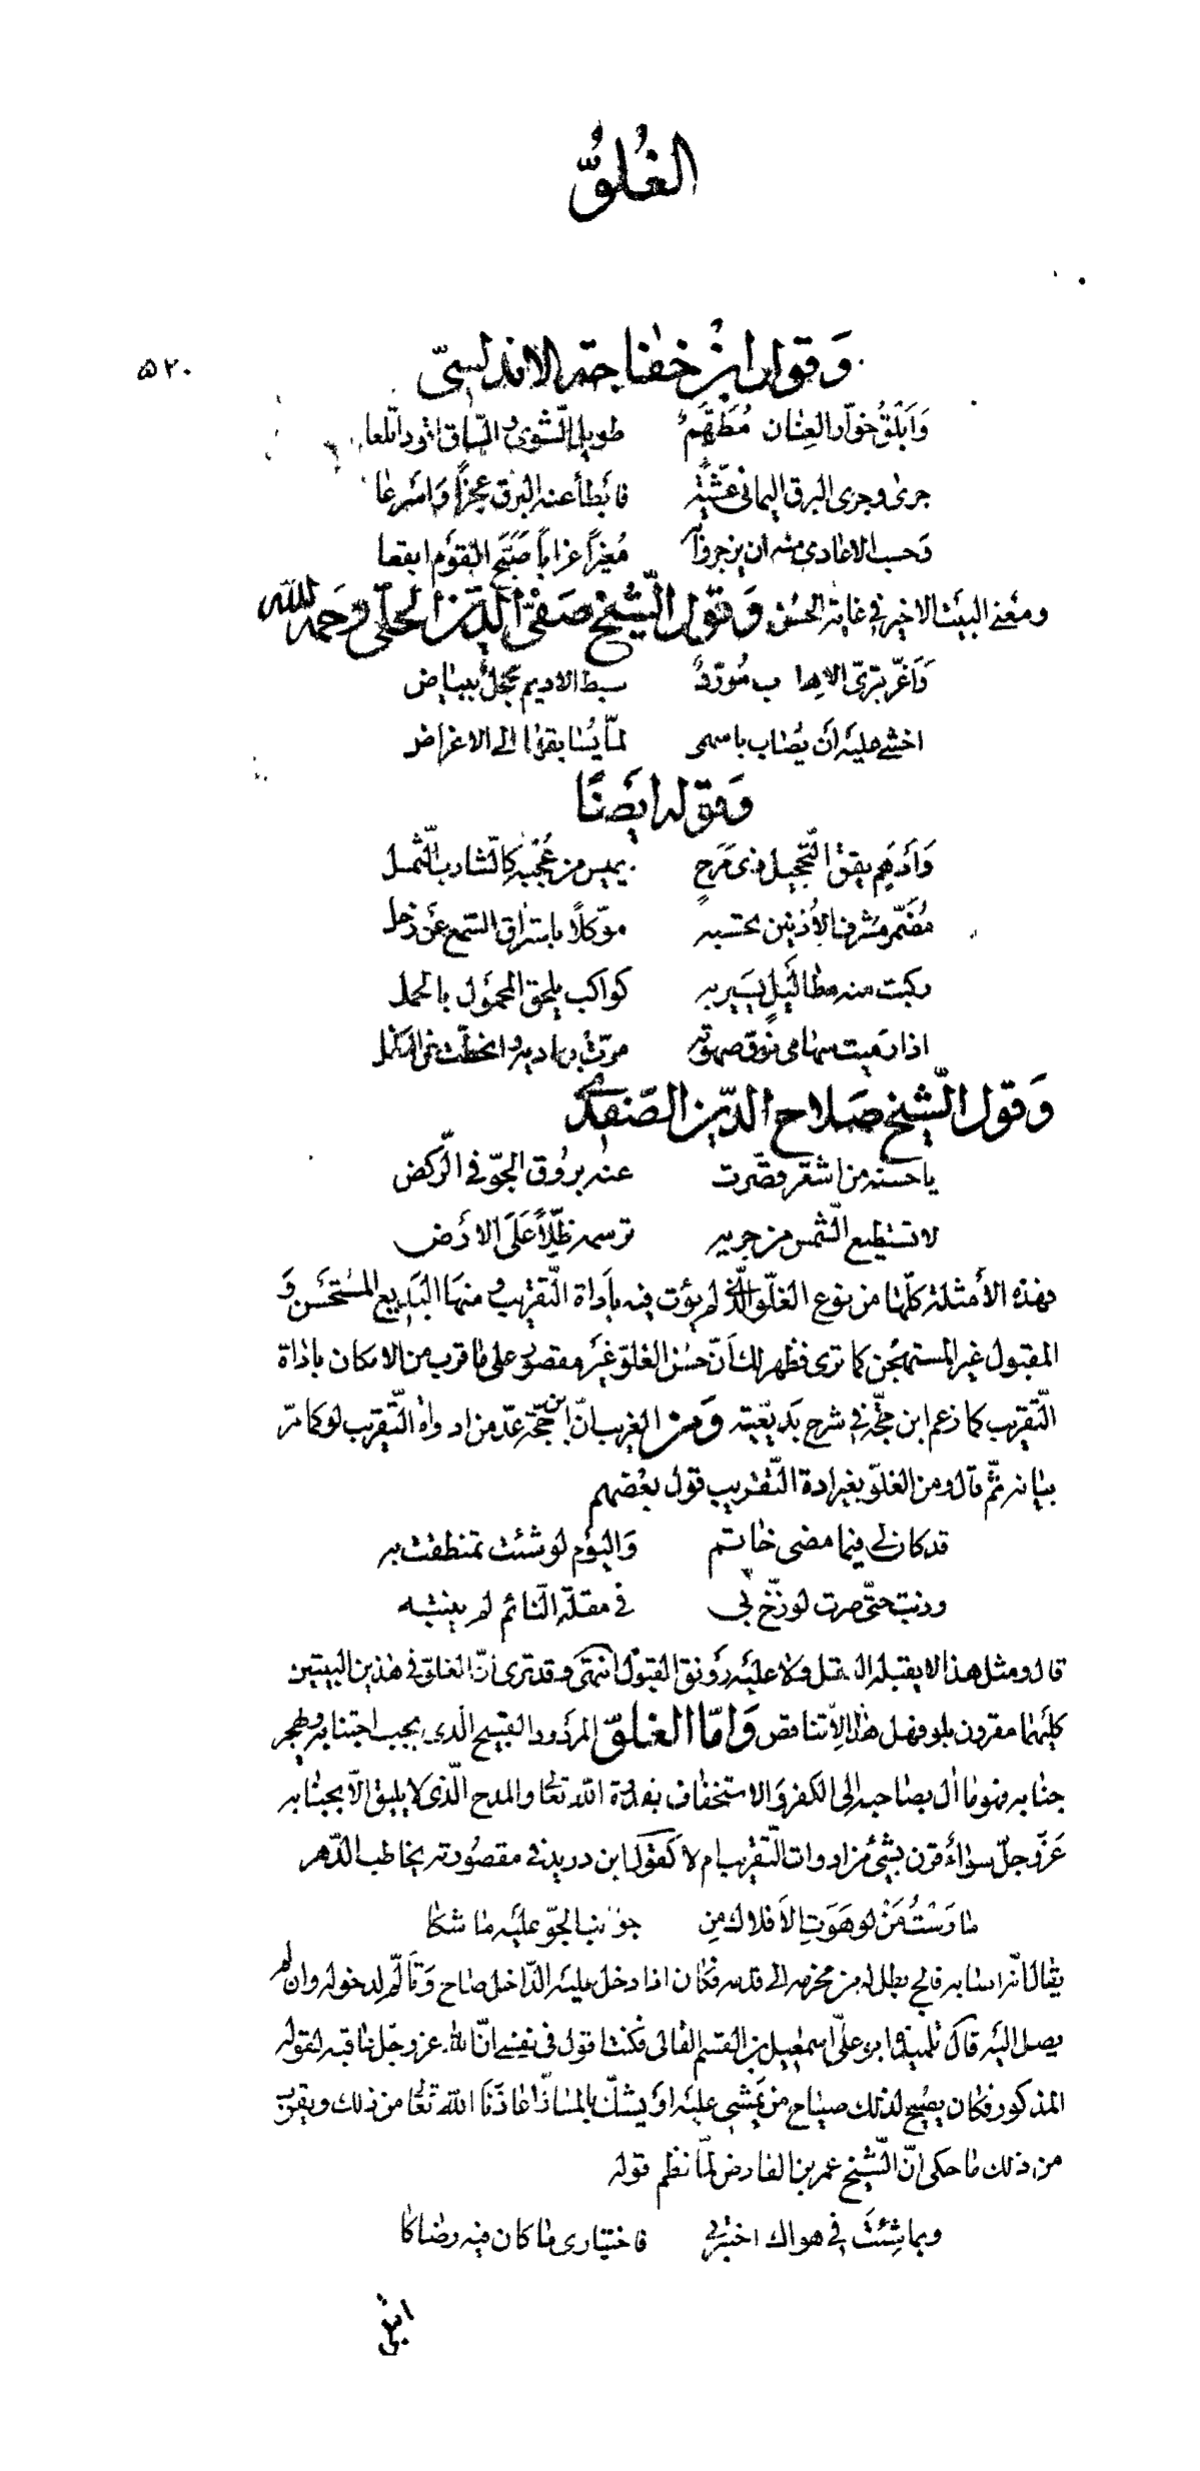 الغُلوُّ
٥٢٠
وَقول ابن خفاجة الاندلسيّ
وَاَبْلَقُ خوّار العِنان مُطَهَّمٌ طويل الشوى والسّاق اقود اتلعا
جرى وجرى البرق اليماني عشيّةً فابطأ عنه البرق عجزًا وَاسرعا
وَحسب الاعادى منه ان يزجروا به مُغيرًا غرابًا صَبَّح القوْم ابقعا
ومعْنى البيْت الاخير في غاية الحسْن وَقول الشّيخ صَفىّ الدّين الحلّى رَحمه الله
وَاَغرّ تبرىّ الاهاب مُورّدٌ سبط الاديم محجّلٌ ببياض
اخشى عليْه اَن يُصاب باسهمى ممّا يُسابقها الى الاغراض
وَقوله ايضًا
وَاَدهم يقق التّحجيل ذى مَرَحٍ يميس من عُجْبه كالشّارب الثّمل
مُضمّر مشرف الاُذنين تحسبه موكّلًا باستراق السّمع عَن زحل
ركبت منه مطا ليْلٍ يسير به كواكب يلحق المحمُول بالحمل
اذا رميت سهامى فوق صهوته مرّت بهاديه وانحطّت عن الكفل
وَقول الشّيخ صَلاح الدّين الصّفدى
يا حسنه من اشقر قصّرت عنه برُوق الجوّ في الرّكض
لا تستطيع الشّمس من جريه ترسمه ظلًّا عَلَى الارْض
فهذه الأمثلة كلّها من نوع الغلوّ الّذى لم يؤت فيه باَداة التّقريب ومنها البَديع المُسْتحسَن وَ
المقبول غير المستهجُن كما ترى فظهر لك اَنّ حسْن الغلوّ غيْر مقصور على ما قرب من الامكان باداة
التّقريب كما زعم ابن حجّة في شرح بَديعيّته وَمن الغريب انّ ابن حجّة عدّ من ادواة التّقريب لو كما مرّ
بيانه ثمّ قال ومن الغلوّ بغير اداة التّقريب قول بعْضهم
قد كان لى فيما مضى خاتم وَاليوْم لو شئت تمنطقت به
وذبت حتّى صرت لو زجّ بى في مقلة النّائم لم ينتبه
قال ومثل هذا لا يقبله العقل ولا عليْه رَونق القبول انتهى وقد ترى انّ الغلوّ في هذين البيتين
كليْهما مقرون بلو فهل هذا الّا تناقض وَامّا الغلوّ المرْدود القبيح الّذى يجب اجتنابه وهجر
جنابه فهو ما اٰل بصاحبه الى الكفر وَالاستخفاف بقدرة الله تعالى والمدح الّذى لا يليق الّا بجنابه
عَزّ وجلّ سواءٌ قرن بشىء من ادوات التّقريب ام لا كقول ابن دريد في مقصُورته يخاطب الدّهر
مارَسْتُ مَنْ لو هَوَتِ الاَفلاك مِن جوانب الجوّ عليْه ما شكا
يقال انّه اصابه فالج بطل له من محزمه الى قدمه فكان اذا دخل عليْه الدّاخل صاح وَتألّم لدخوله وان لم
يصل اليْه قال تلميذه ابو علىّ اسمعيل بن القسم القالى فكنت اقول في نفسى انّ الله عز وجلّ عاقبه لقوله
المذكور فكان يصيح لذلك صياح من يمْشى عليْه اوْ يشلّ بالمسالّ اعاذنَا الله تعالى من ذلك ويقرب
من ذلك ما حكى انّ الشّيخ عمر بن الفارض لمّا نظم قوله
وبما شِئتَ في هواك اختبرنى فاختيارى ما كان فيه رضاكا